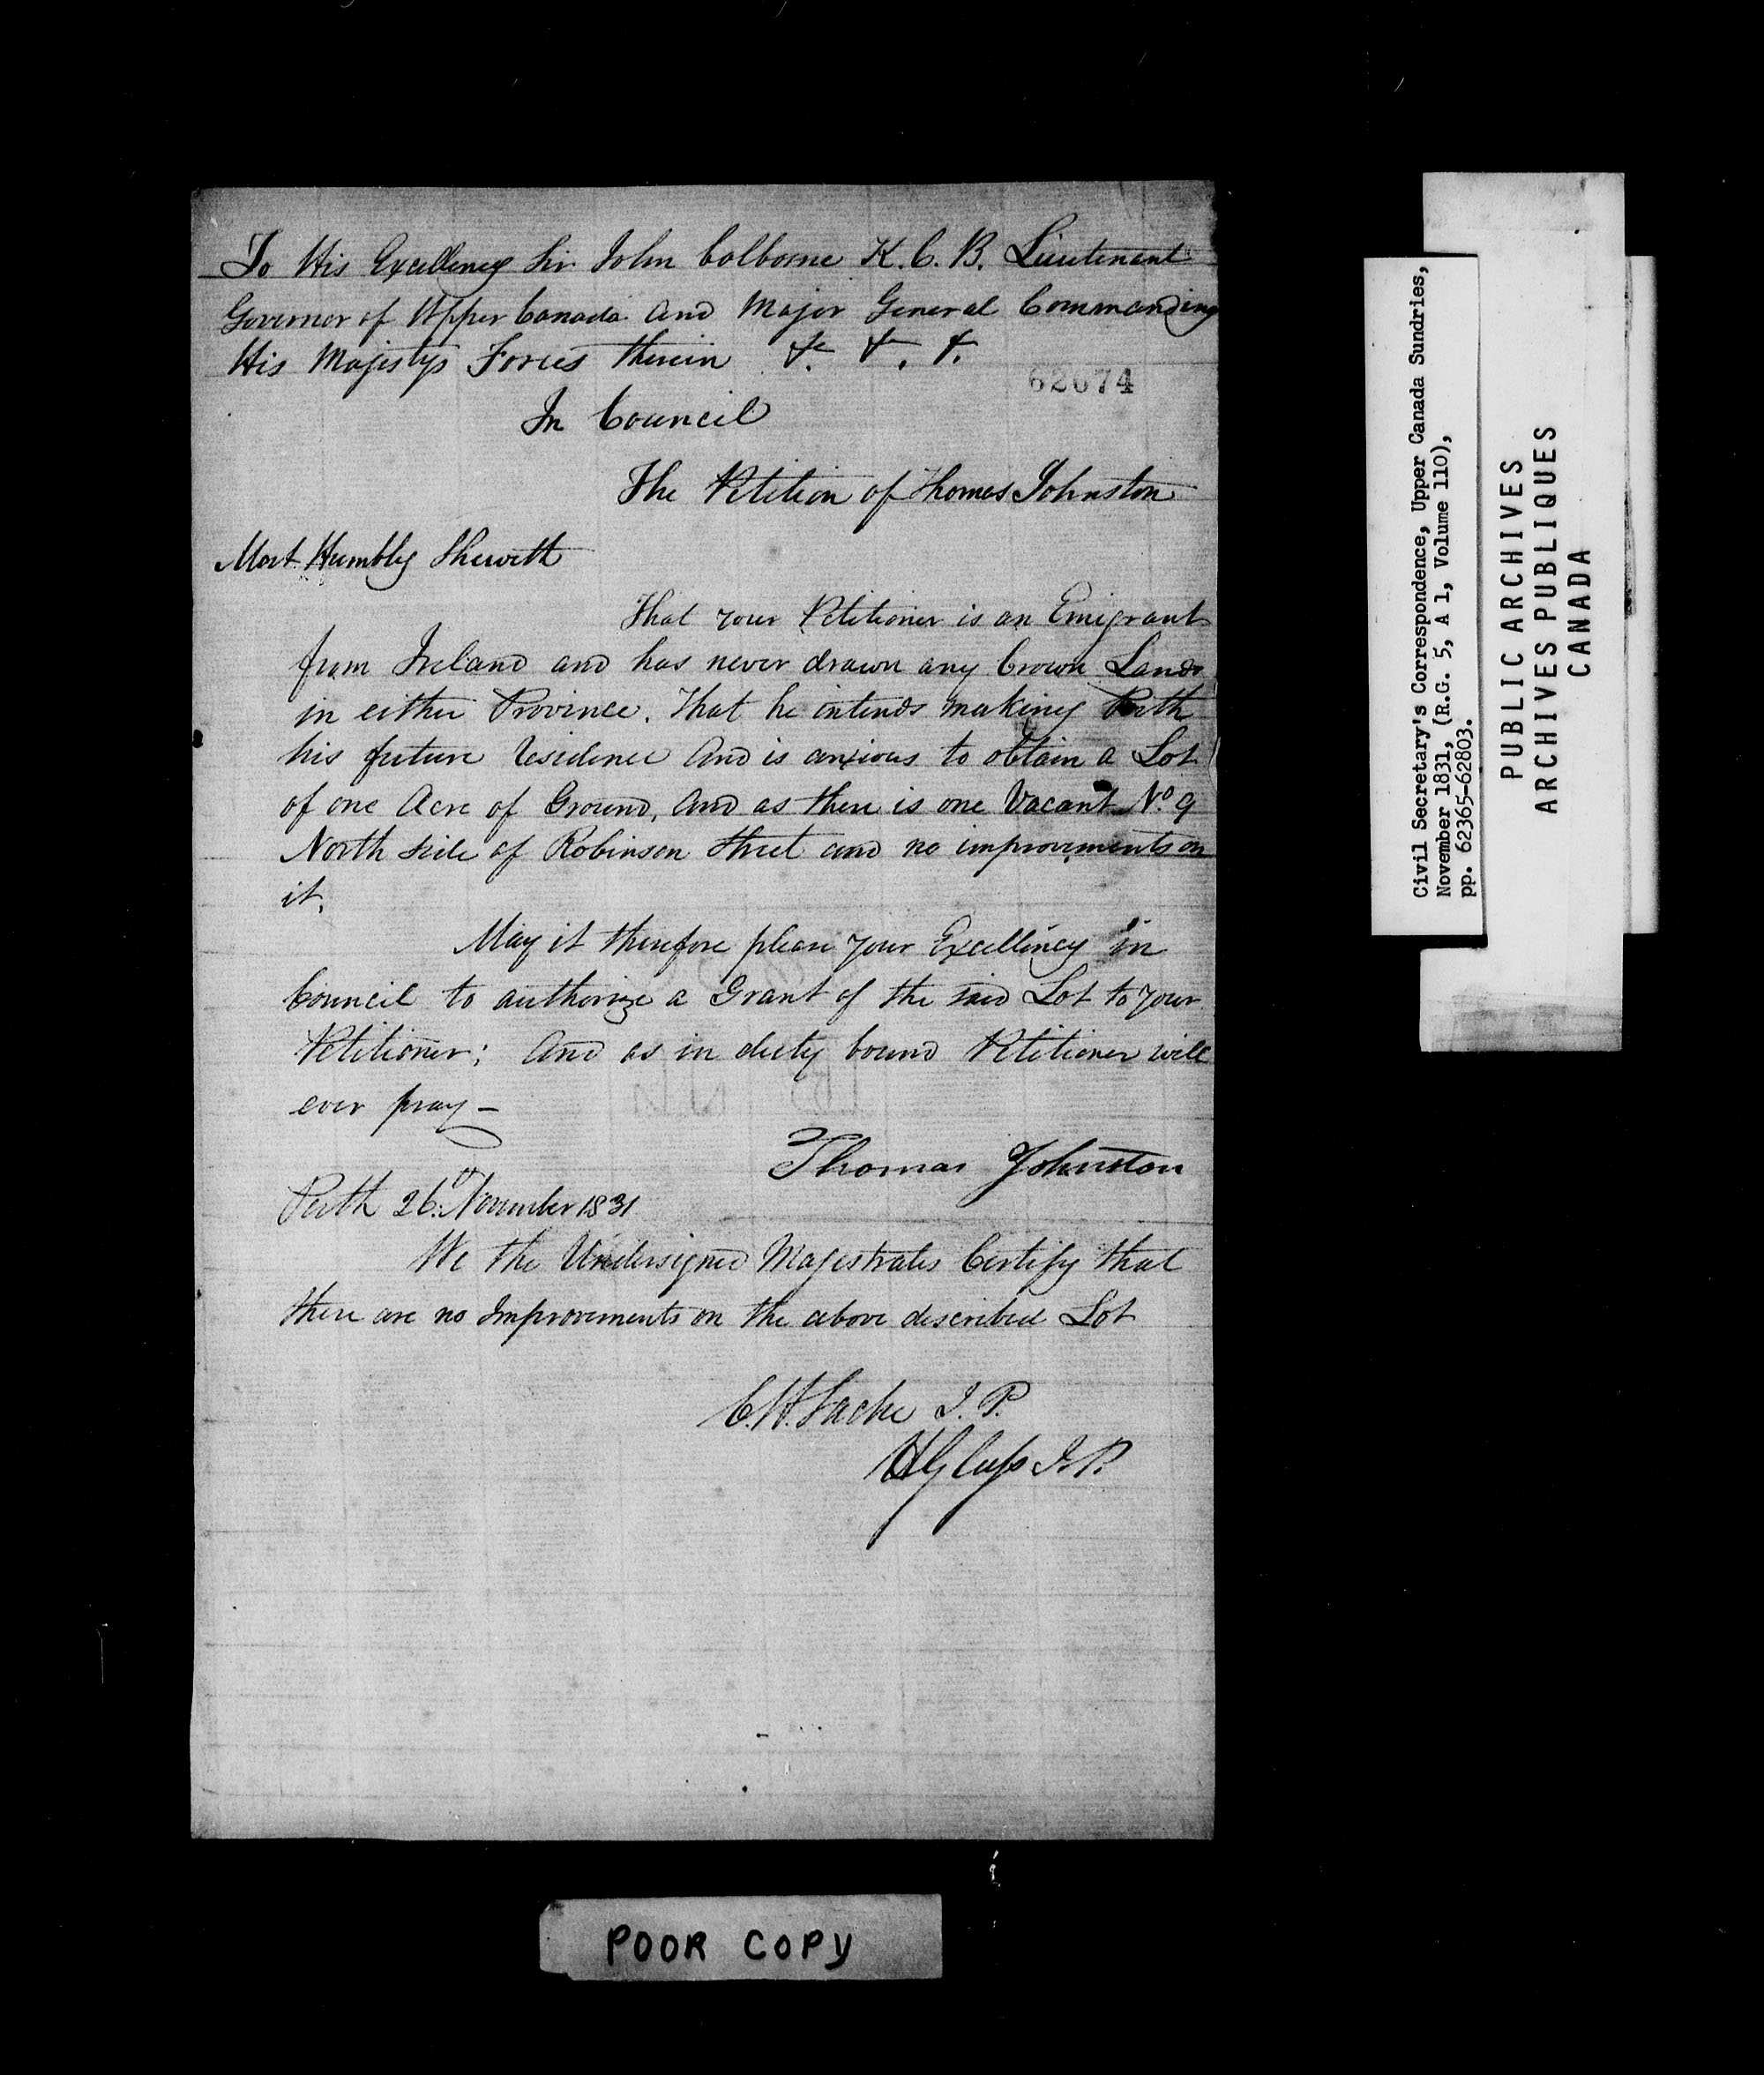 To His Excellency Sir John Colborne K.C.B. Lieutenant
Governor of Upper Canada and Major General Commanding
His Majestys Forces therein &. &. &.
62674
In Council
The Petition of Thomas Johnston
Most Humbly Sheweth
That your Petitioner is an Emigrant
from Ireland and has never drawn any Crown Lands
in either Province. That he intends making Perth
his future residence and is anxious to obtain a Lot
of one Acre of Ground, and as there is one Vacant No. 9
North side of Robinson Street and no improvements on
it.
May it therefore please your Excellency in
Council to authorize a Grant of the said Lot to your
Petitioner; And as in duty bound Petitioner will
ever pray -
Thomas Johnston
Perth 26th November 1831
We the Undersigned Magistrates Certify that
there are no Improvements on the above described Lot
C.H. Sache J.P.
J.P.
Civil Secretary's Correspondence, Upper Canada Sundries,
November 1831, (R.G. 5, A 1, Volume 110),
pp. 62365-62803.
PUBLIC ARCHIVES
ARCHIVES PUBLIQUES
CANADA
POOR COPY